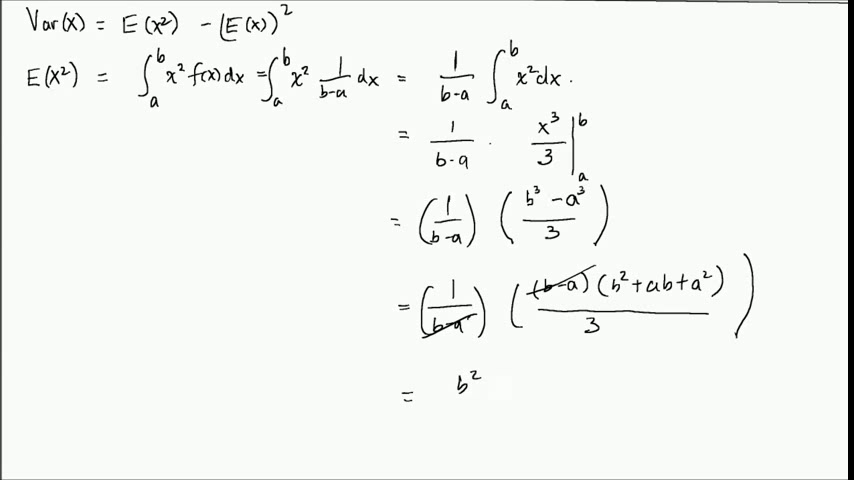 Var(x) = E(x²) - (E(x))²
E(x²) = ∫ₐᵇ x² f(x) dx = ∫ₐᵇ x² 1/(b-a) dx = 1/(b-a) ∫ₐᵇ x² dx.
= 1/(b-a) · x³/3 |ₐᵇ
= (1/(b-a)) ((b³ - a³)/3)
= (1/(b-a)) ((b-a)(b² + ab + a²)/3)
= b²